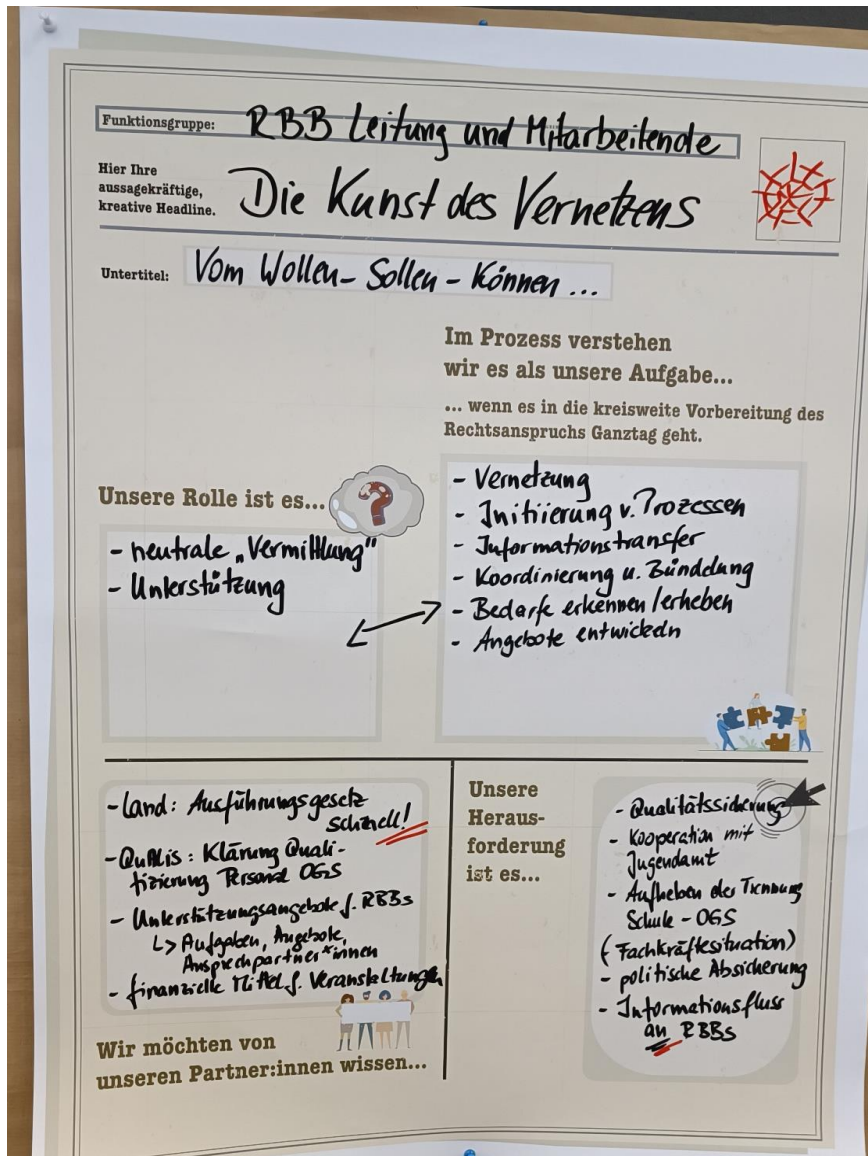 Funktionsgruppe: RBB Leitung und Mitarbeitende
Hier Ihre
aussagekräftige,
kreative Headline.
Die Kunst des Vernetzens
Untertitel: Vom Wollen - Sollen - Können ...
Im Prozess verstehen
wir es als unsere Aufgabe...
... wenn es in die kreisweite Vorbereitung des
Rechtsanspruchs Ganztag geht.
- Vernetzung
- Initiierung v. Prozessen
- Informationstransfer
- Koordinierung u. Bündelung
- Bedarfe erkennen/erheben
- Angebote entwickeln
Unsere Rolle ist es...
?
- neutrale „Vermittlung"
- Unterstützung
- Land: Ausführungsgesetz
schnell!
- QuaLis: Klärung Quali-
fizierung Personal OGS
- Unterstützungsangebote f. RBBs
↳ Aufgaben, Angebote,
Ansprechpartner*innen
- finanzielle Mittel f. Veranstaltungen
Wir möchten von
unseren Partner:innen wissen...
Unsere
Heraus-
forderung
ist es...
- Qualitätssicherung
- Kooperation mit
Jugendamt
- Aufheben der Trennung
Schule - OGS
(Fachkräftesituation)
- politische Absicherung
- Informationsfluss
an RBBs